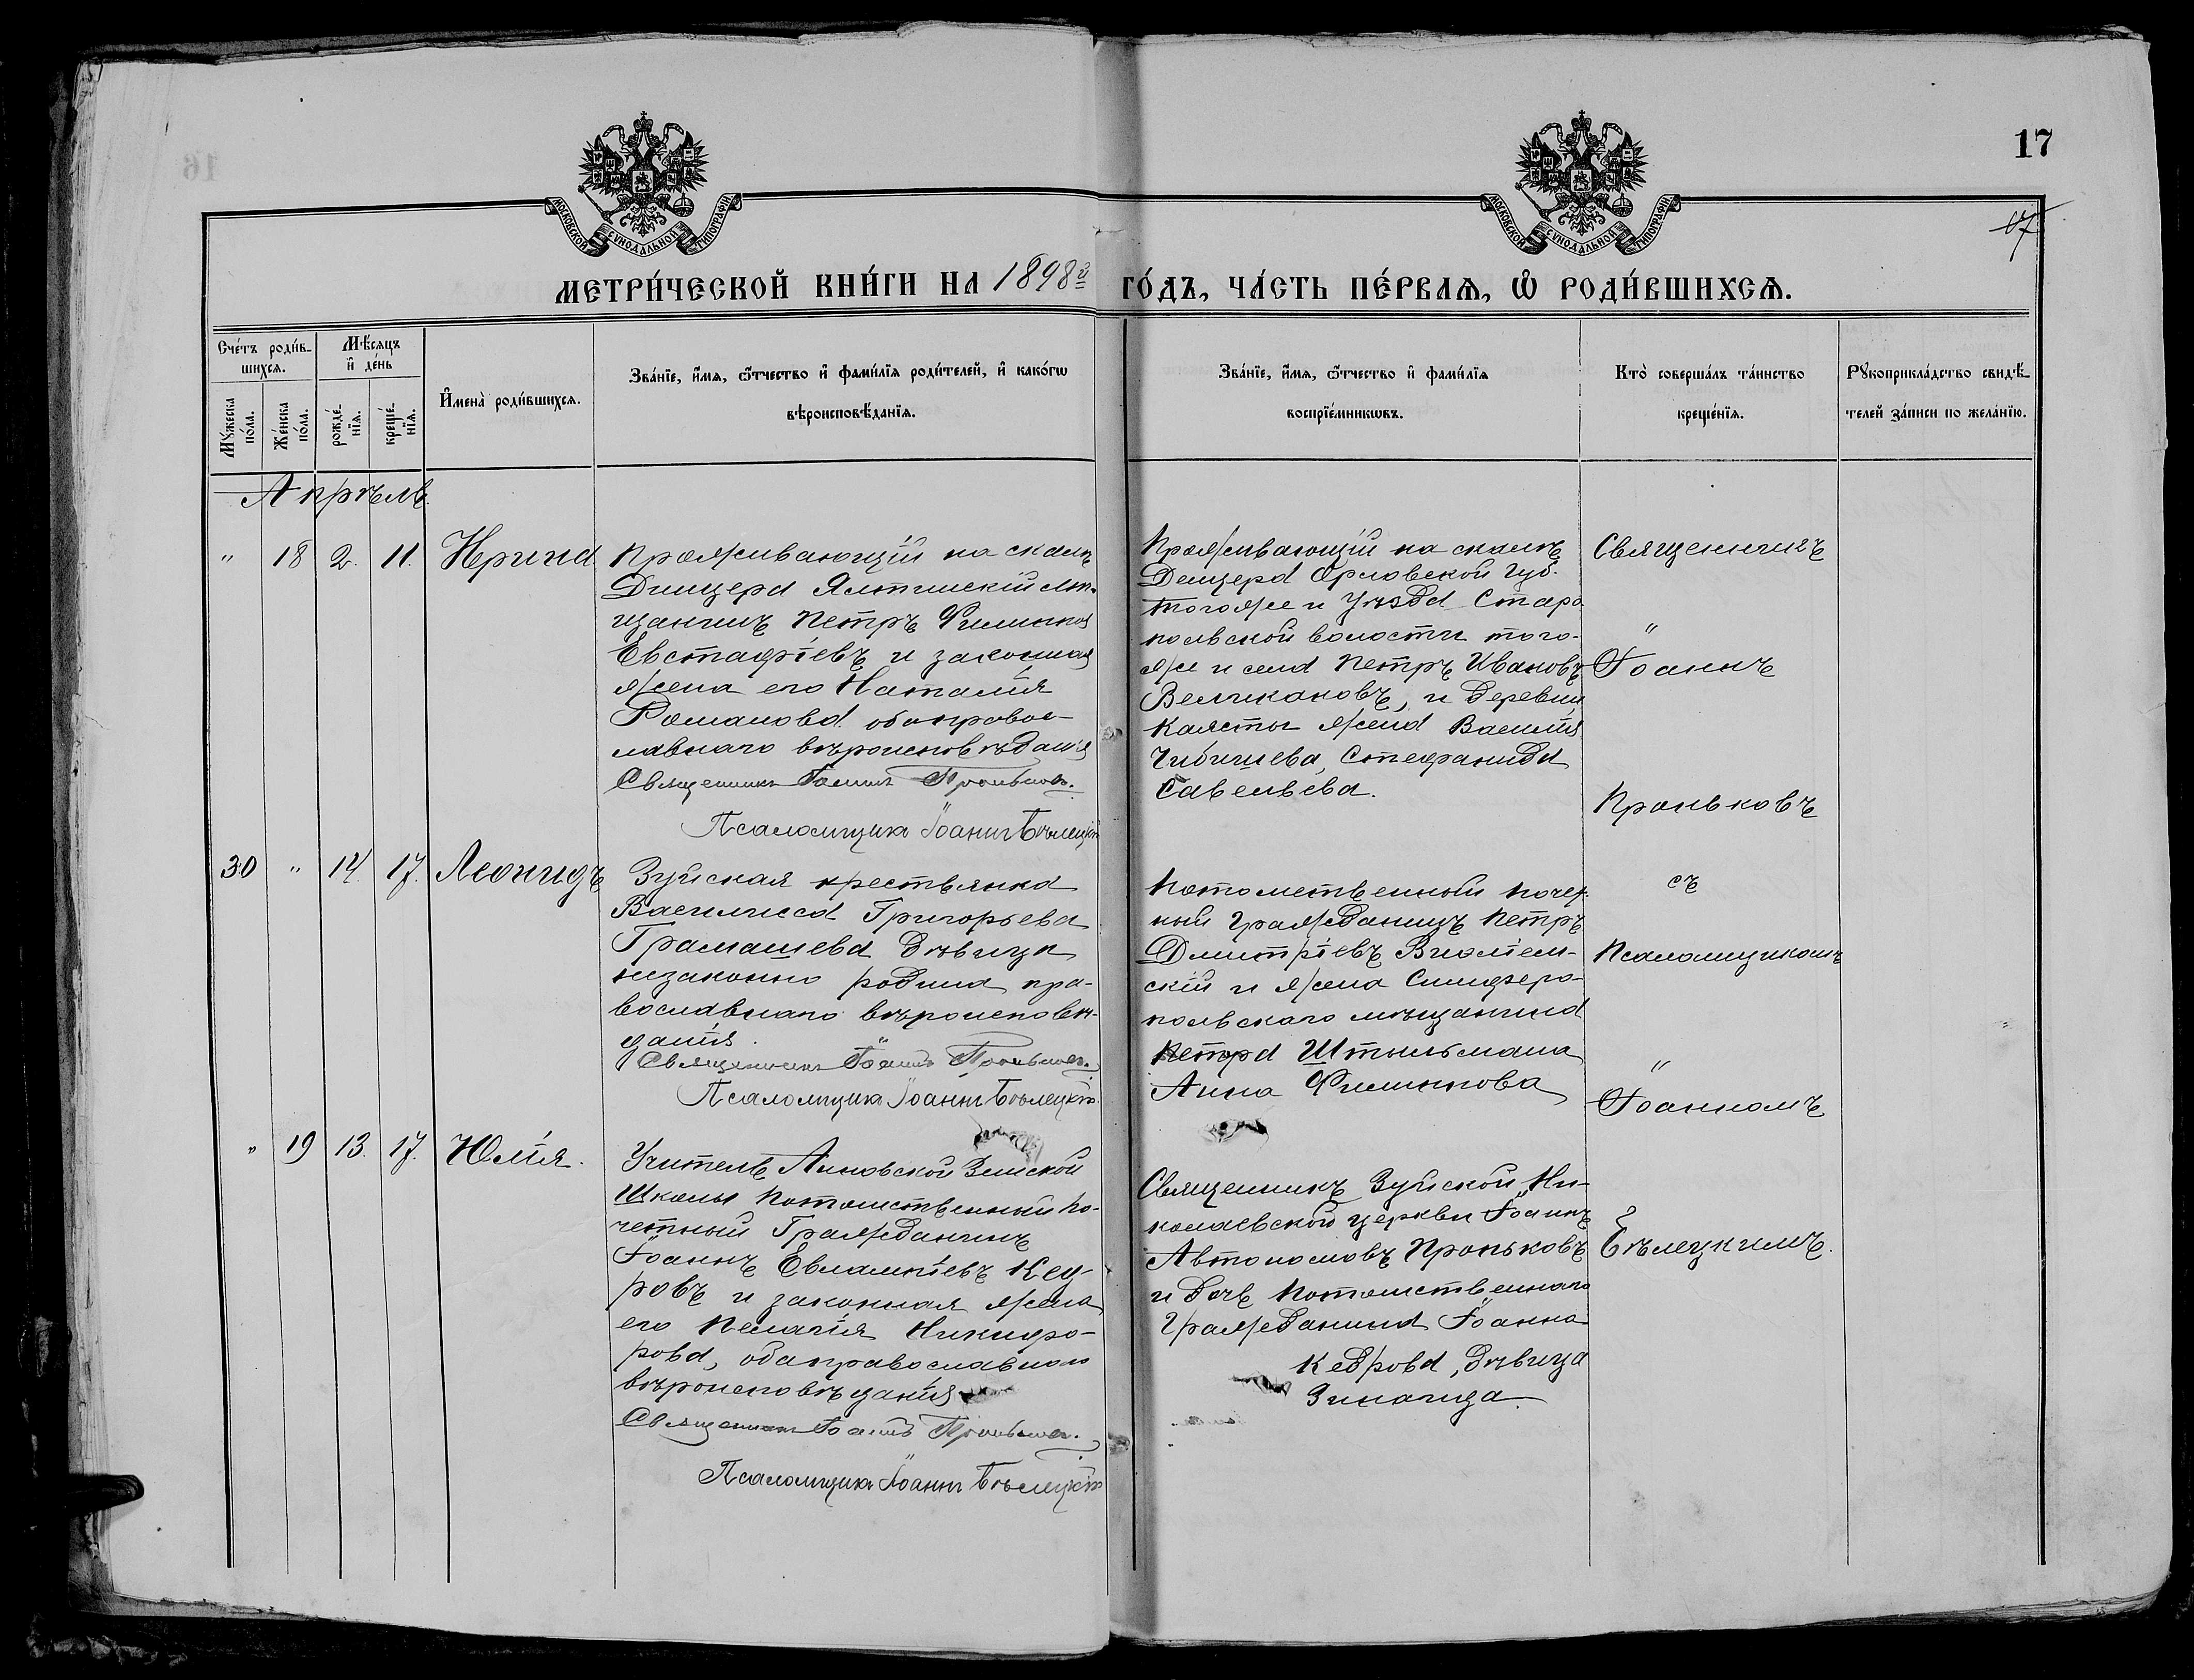 17
17
МОСКОВСКОЙ СѴНОДАЛЬНОЙ ТИПОГРАФІИ
МОСКОВСКОЙ СѴНОДАЛЬНОЙ ТИПОГРАФІИ
МЕТРИ́ЧЕСКОЙ КНИ́ГИ НА 1898й ГО́ДЪ, ЧА́СТЬ ПЕ́РВАѦ, Ѡ РОДИ́ВШИХСѦ.
Сче́тъ роди́в-
шихсѧ.
Мѣ́сѧцъ
и҆ де́нь
Мꙋ́жеска по́ла.
Же́нска по́ла.
рожде́-
нїѧ.
креще́-
нїѧ.
И҆мена̀ роди́вшихсѧ.
Зва́нїе, и҆́мѧ, ѻ҆́тчество и҆ фами́лїѧ роди́телей, и҆ како́гѡ
вѣроисповѣ́данїѧ.
Зва́нїе, и҆́мѧ, ѻ҆́тчество и҆ фами́лїѧ
воспрїе́мникѡвъ.
Кто̀ соверша́лъ та́инство
креще́нїѧ.
Рꙋкоприкла́дство свидѣ́-
телей за́писи по жела́нїю.
Апрѣль.
" 18 2. 11. Ирина.
Проживающій на скалѣ
Дицера Ялтинскій мѣ-
щанинъ Петръ Филиповъ
Евстафіевъ и законная
жена его Наталія
Романова оба право-
славнаго вѣроисповѣданія
Священникъ Іоаннъ Проньковъ.
Псаломщикъ Іоаннъ Бѣлецкій
Проживающій на скалѣ
Дицера Орловской Губ.
тогоже и Уѣзда Старо
польской волости того-
же и села Петръ Ивановъ
Великановъ, и деревни
жена Василія
Чибичева, Стефанида
Савельева.
Священникъ
"
Іоаннъ
Проньковъ
съ
Псаломщикомъ
"
Іоанномъ
Бѣлецкимъ.
30 " 14. 17. Леонидъ
Зуйская крестьянка
Василисса Григорьева
Грамашева дѣвица
незаконно родила, пра-
вославнаго вѣроисповѣ-
данія.
Священникъ Іоаннъ Проньковъ.
Псаломщикъ Іоаннъ Бѣлецкій.
Потомственный почет-
ный Гражданинъ Петръ
Дмитріевъ
скій и жена Симферо-
польскаго мѣщанина
Петра Штыльмана
Анна Филипова
" 19 13. 17. Юлія.
Учитель Анновской Земской
Школы Потомственный по-
четный Гражданинъ
Іоаннъ Евлампіевъ Кед-
ровъ и законная жена
его Пелагія Никифо-
рова, оба православнаго
вѣроисповѣданія
Священникъ Іоаннъ Проньковъ.
Псаломщикъ Іоаннъ Бѣлецкій
Священникъ Зуйской Ни-
колаевской церкви Іоаннъ
Автономовъ Проньковъ
и дочь Потомственнаго
Гражданина Іоанна
Кедрова, дѣвица
Зинаида.